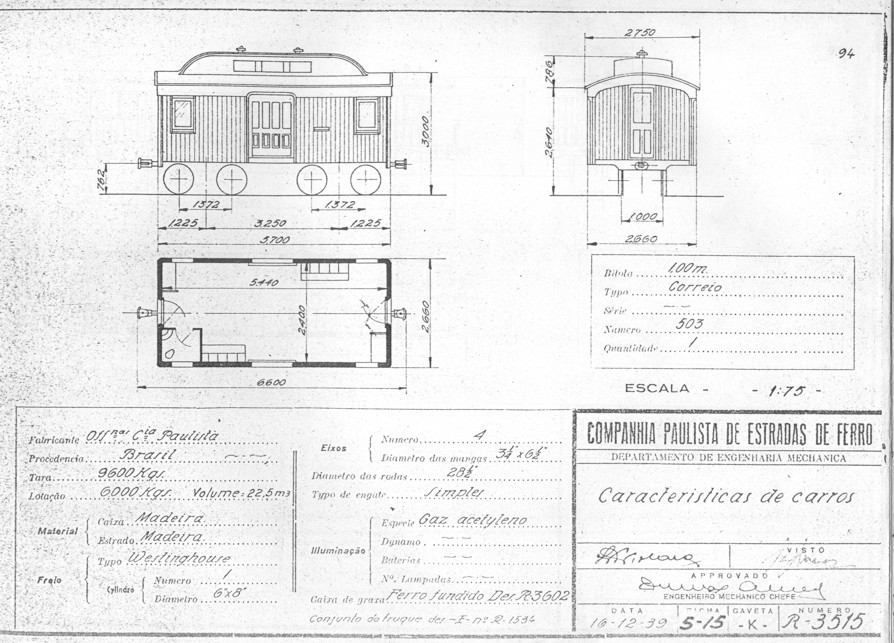 94
2750
786
2.640
1000
2.660
3.000
762
1.372
1.372
1.225
3.250
1.225
5.700
5.440
2.400
2.660
6600
Bitola 1,00m.
Typo Correio
Série — —
Numero 503
Quantidade 1
ESCALA - - 1:75 -
Fabricante Offnas Cia Paulista
Procedencia Brasil
Tara 9600 Kgs.
Lotação 6000 Kgs. Volume = 22,5 m3
Material
Caixa Madeira
Estrado Madeira
Freio
Typo Westinghouse
Cylindro
Numero 1
Diametro 6"x8"
Eixos
Numero 4
Diametro das mangas 3¼"x6½"
Diametro das rodas 28½"
Typo de engate Simples
Illuminação
Especie Gaz acetyleno
Dynamo — —
Baterias — —
Nº. Lampadas — —
Caixa de graxa Ferro fundido Des R-3602
Conjunto do truque des -E- nº R-1534
COMPANHIA PAULISTA DE ESTRADAS DE FERRO
DEPARTAMENTO DE ENGENHARIA MECHANICA
Caracteristicas de carros
VISTO
APPROVADO
ENGENHEIRO MECHANICO CHEFE
DATA
16-12-39
FICHA
5-15
GAVETA
-K-
NUMERO
R-3515